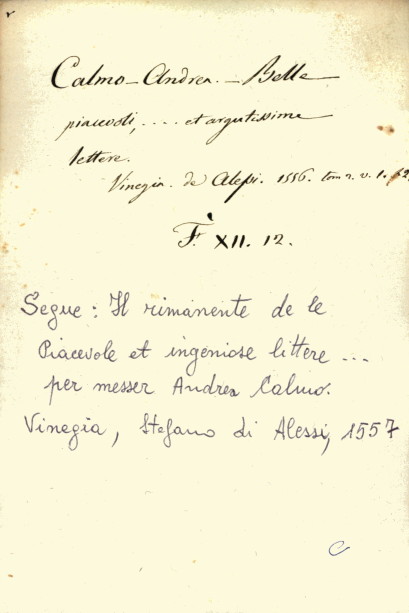 Calmo - Andrea. - Belle
piacevoli, .... et argutissime
lettere.
Vinegia. de Alessi. 1556. tom 2. v. 1.
F. XII. 12.
Segue: Il rimanente de le
Piacevole et ingeniose littere ...
per messer Andrea Calmo.
Vinegia, Stefano di Alessi, 1557
C